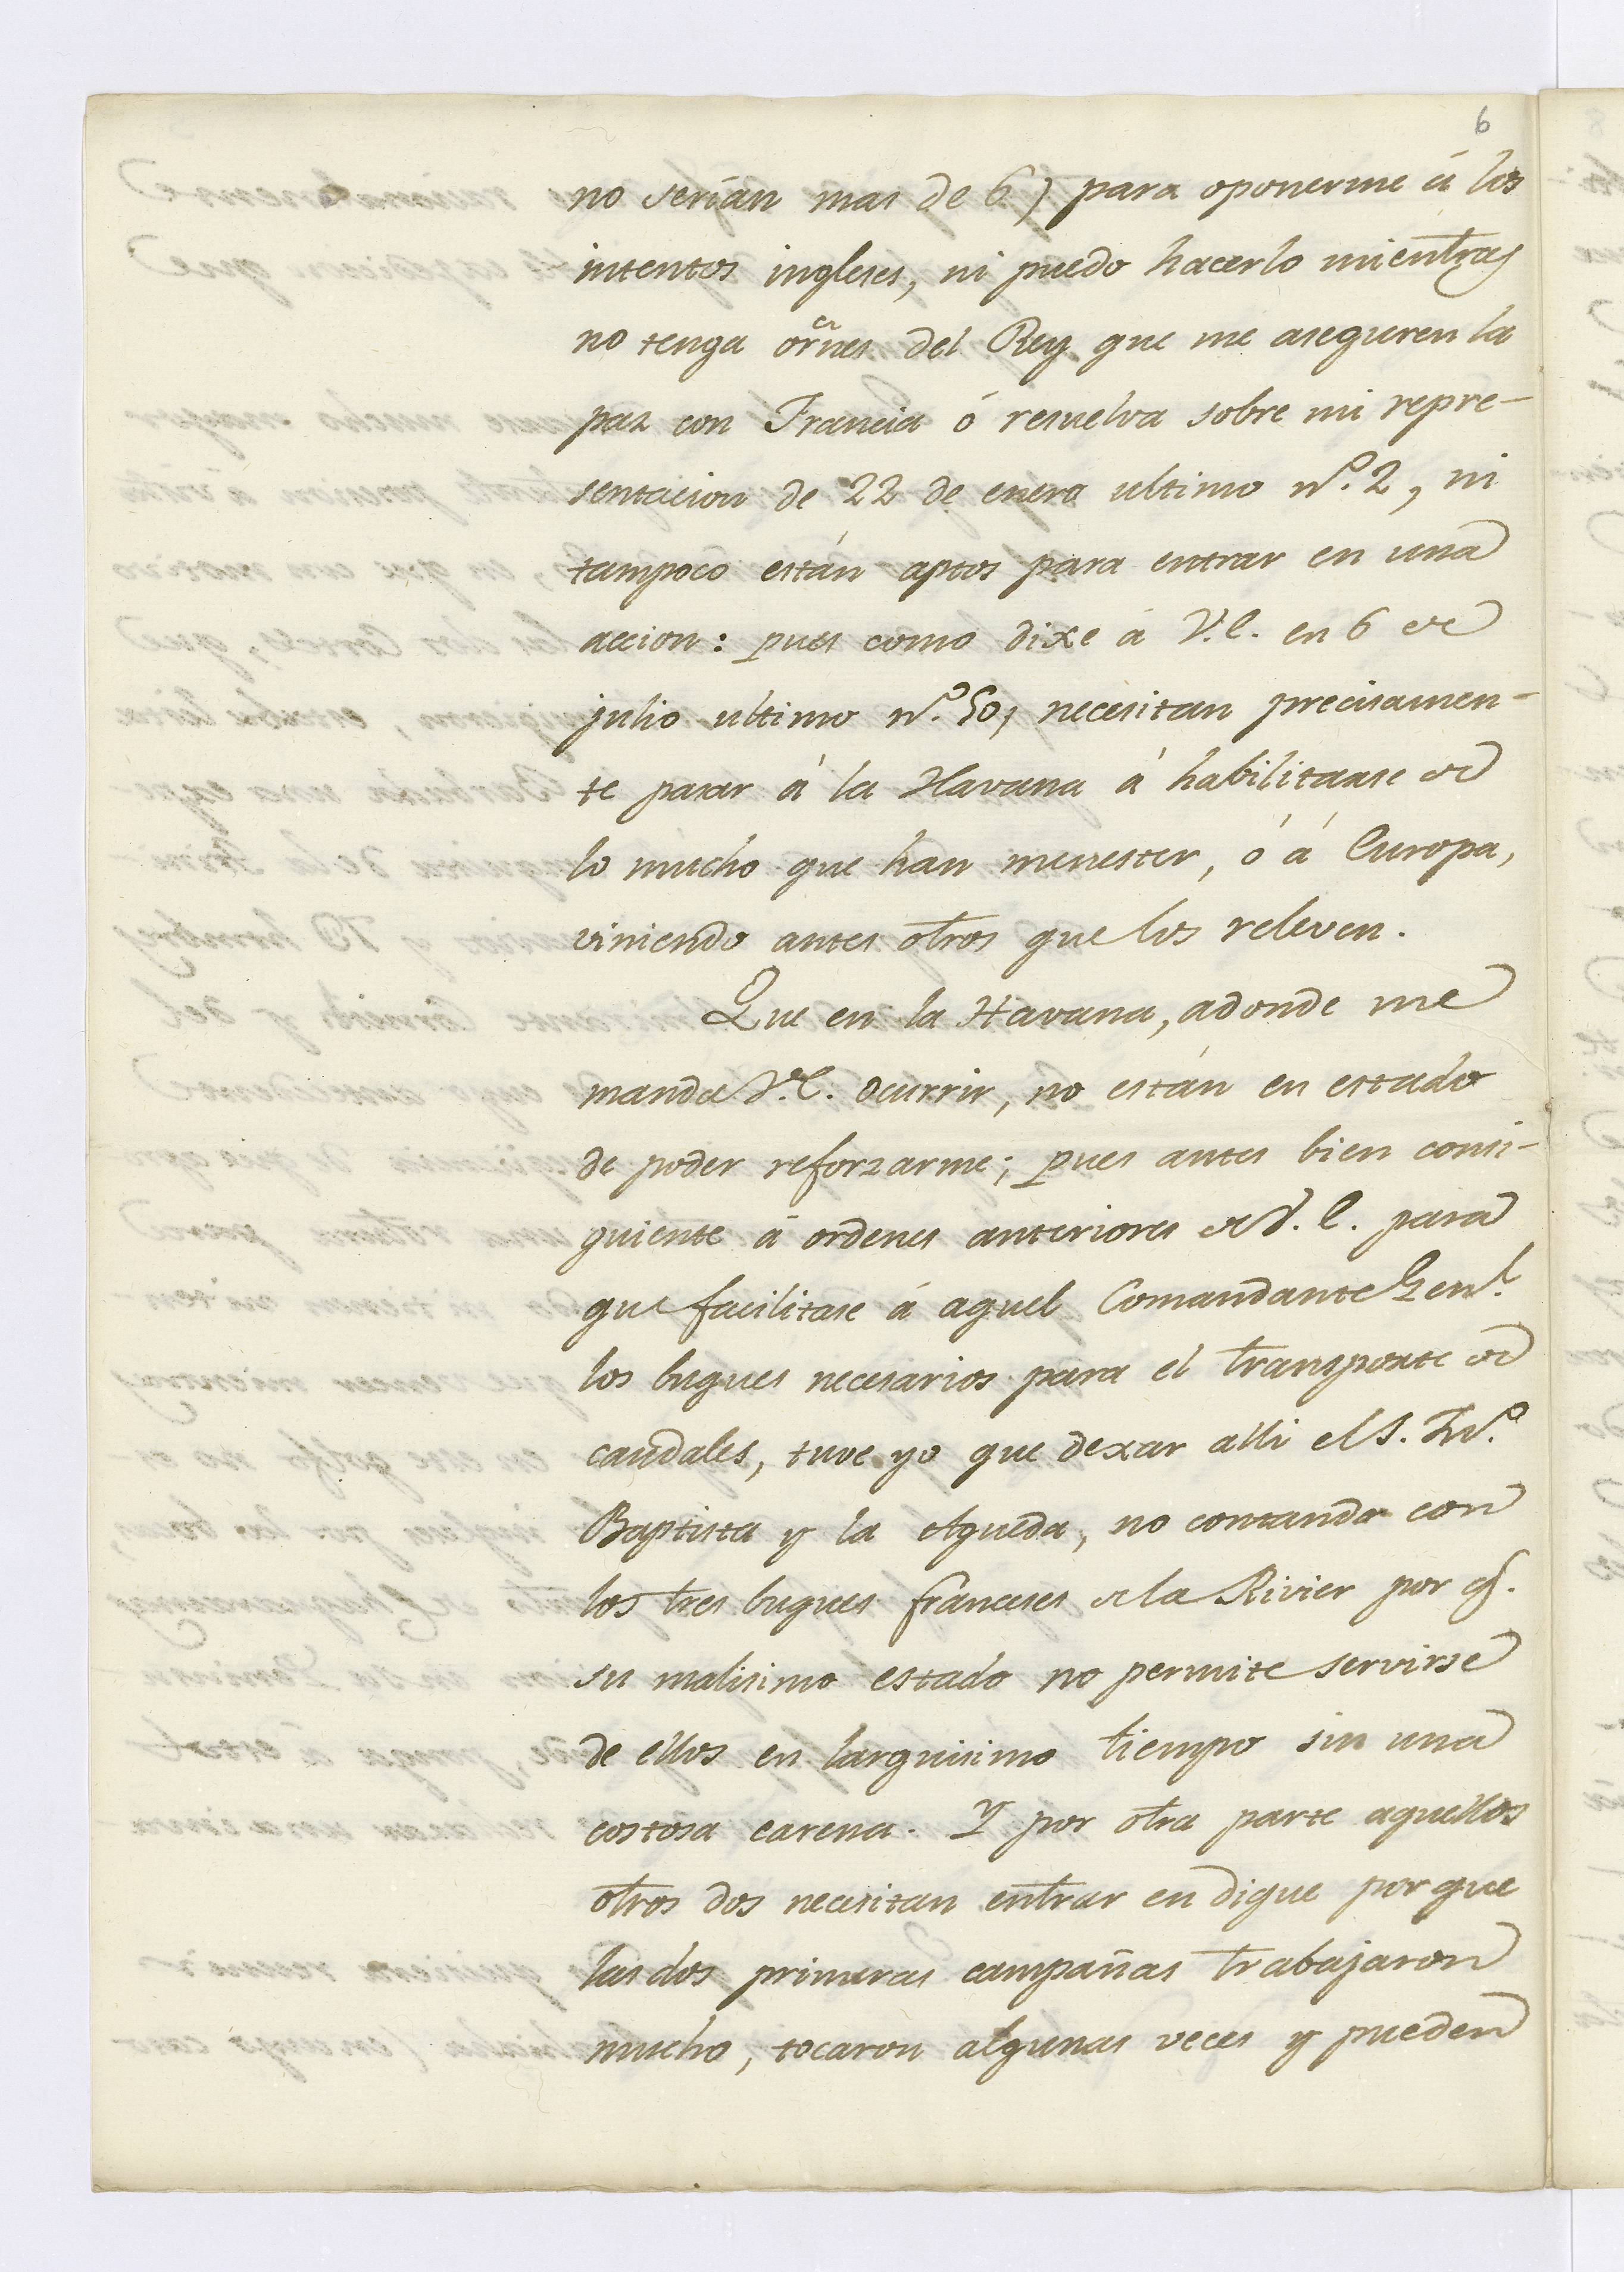 6
no serían mas de 6) para oponerme á los
intentos ingleses, ni puedo hacerlo mientras
no tenga orñes del Rey que me aseguren la
paz con Francia ó resuelva sobre mi repre-
sentacion de 22 de enero ultimo nº. 2, ni
tampoco están aptos para entrar en una
accion: pues como dixe á V.E. en 6 de
julio ultimo nº. 50, necesitan precisamen-
te pasar á la Havana á habilitarse de
lo mucho que han menester, ó á Europa,
viniendo antes otros que los releven.
Que en la Havana, adonde me
manda V.E. ocurrir, no están en estado
de poder reforzarme; pues antes bien consi-
guiente á ordenes anteriores de V.E. para
que facilitase á aquel Comandante Genl.
los buques necesarios para el transporte de
caudales, tuve yo que dexar alli el S. Jnº.
Baptista y la Agueda, no contando con
los tres buques franceses de la Rivier por q.
su malisimo estado no permite servirse
de ellos en larguisimo tiempo sin una
costosa carena. Y por otra parte aquellos
otros dos necesitan entrar en dique porque
las dos primeras campañas trabajaron
mucho, tocaron algunas veces y pueden